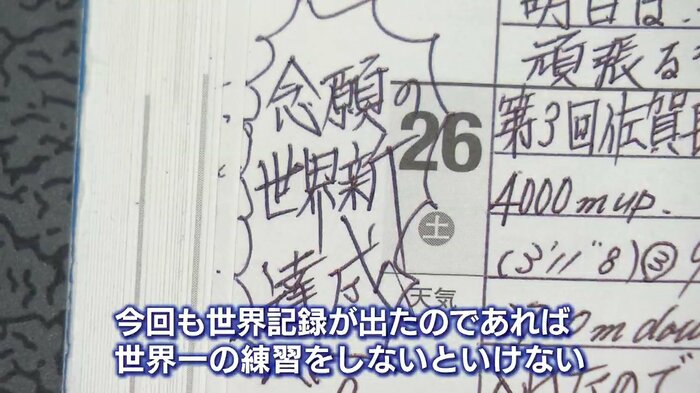 明日は
頑張る
念願の
世界新
達成
26
土
天気
第3回佐賀
4000mup.
(3'11"8)③
m down
今回も世界記録が出たのであれば
世界一の練習をしないといけない